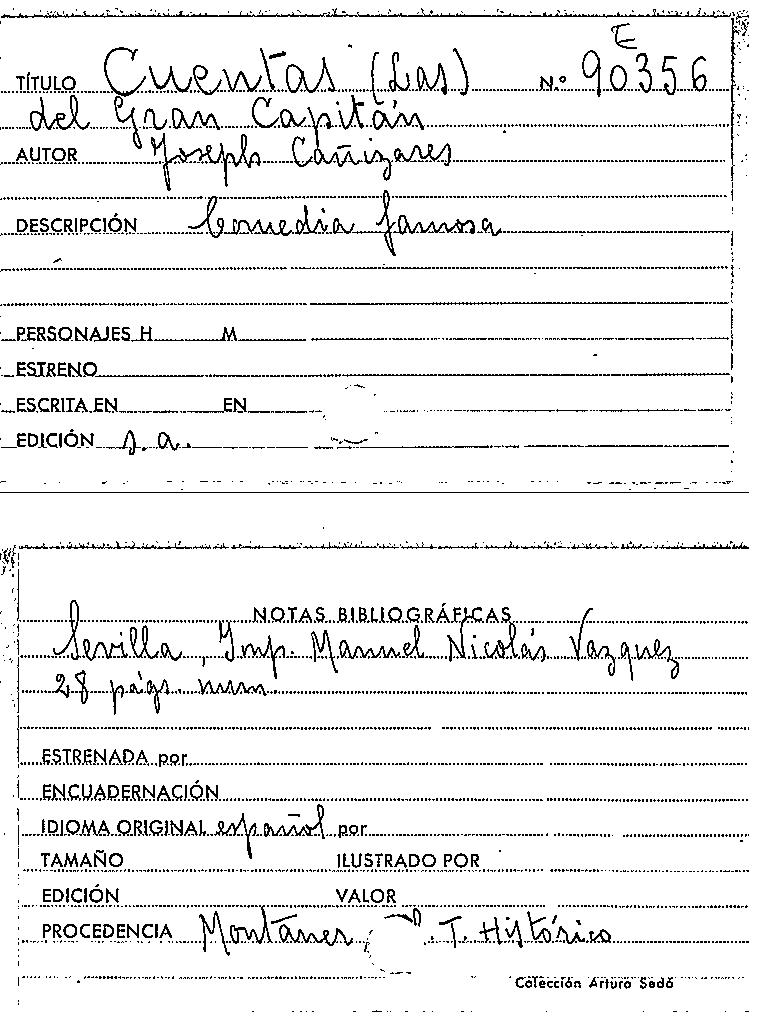 E
TÍTULO Cuentas (Las) N.º 90356
del Gran Capitán
AUTOR Joseph Cañizares
DESCRIPCIÓN Comedia famosa
PERSONAJES H M
ESTRENO
ESCRITA EN EN
EDICIÓN s.a.
NOTAS BIBLIOGRÁFICAS
Sevilla, Imp. Manuel Nicolás Vazquez
28 págs. num.
ESTRENADA por
ENCUADERNACIÓN
IDIOMA ORIGINAL español por
TAMAÑO ILUSTRADO POR
EDICIÓN VALOR
PROCEDENCIA Montaner T. Histórico
Colección Arturo Sedó